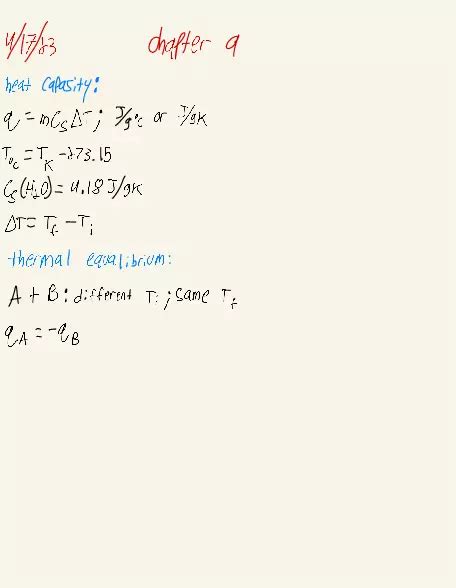 4/17/23 chapter 9
heat capasity:
q = mCsΔT; J/g°C or J/gK
T°C = TK - 273.15
Cs(H2O) = 4.18 J/gK
ΔT = Tf - Ti
thermal equalibrium:
A + B: different Ti; same Tf
qA = -qB